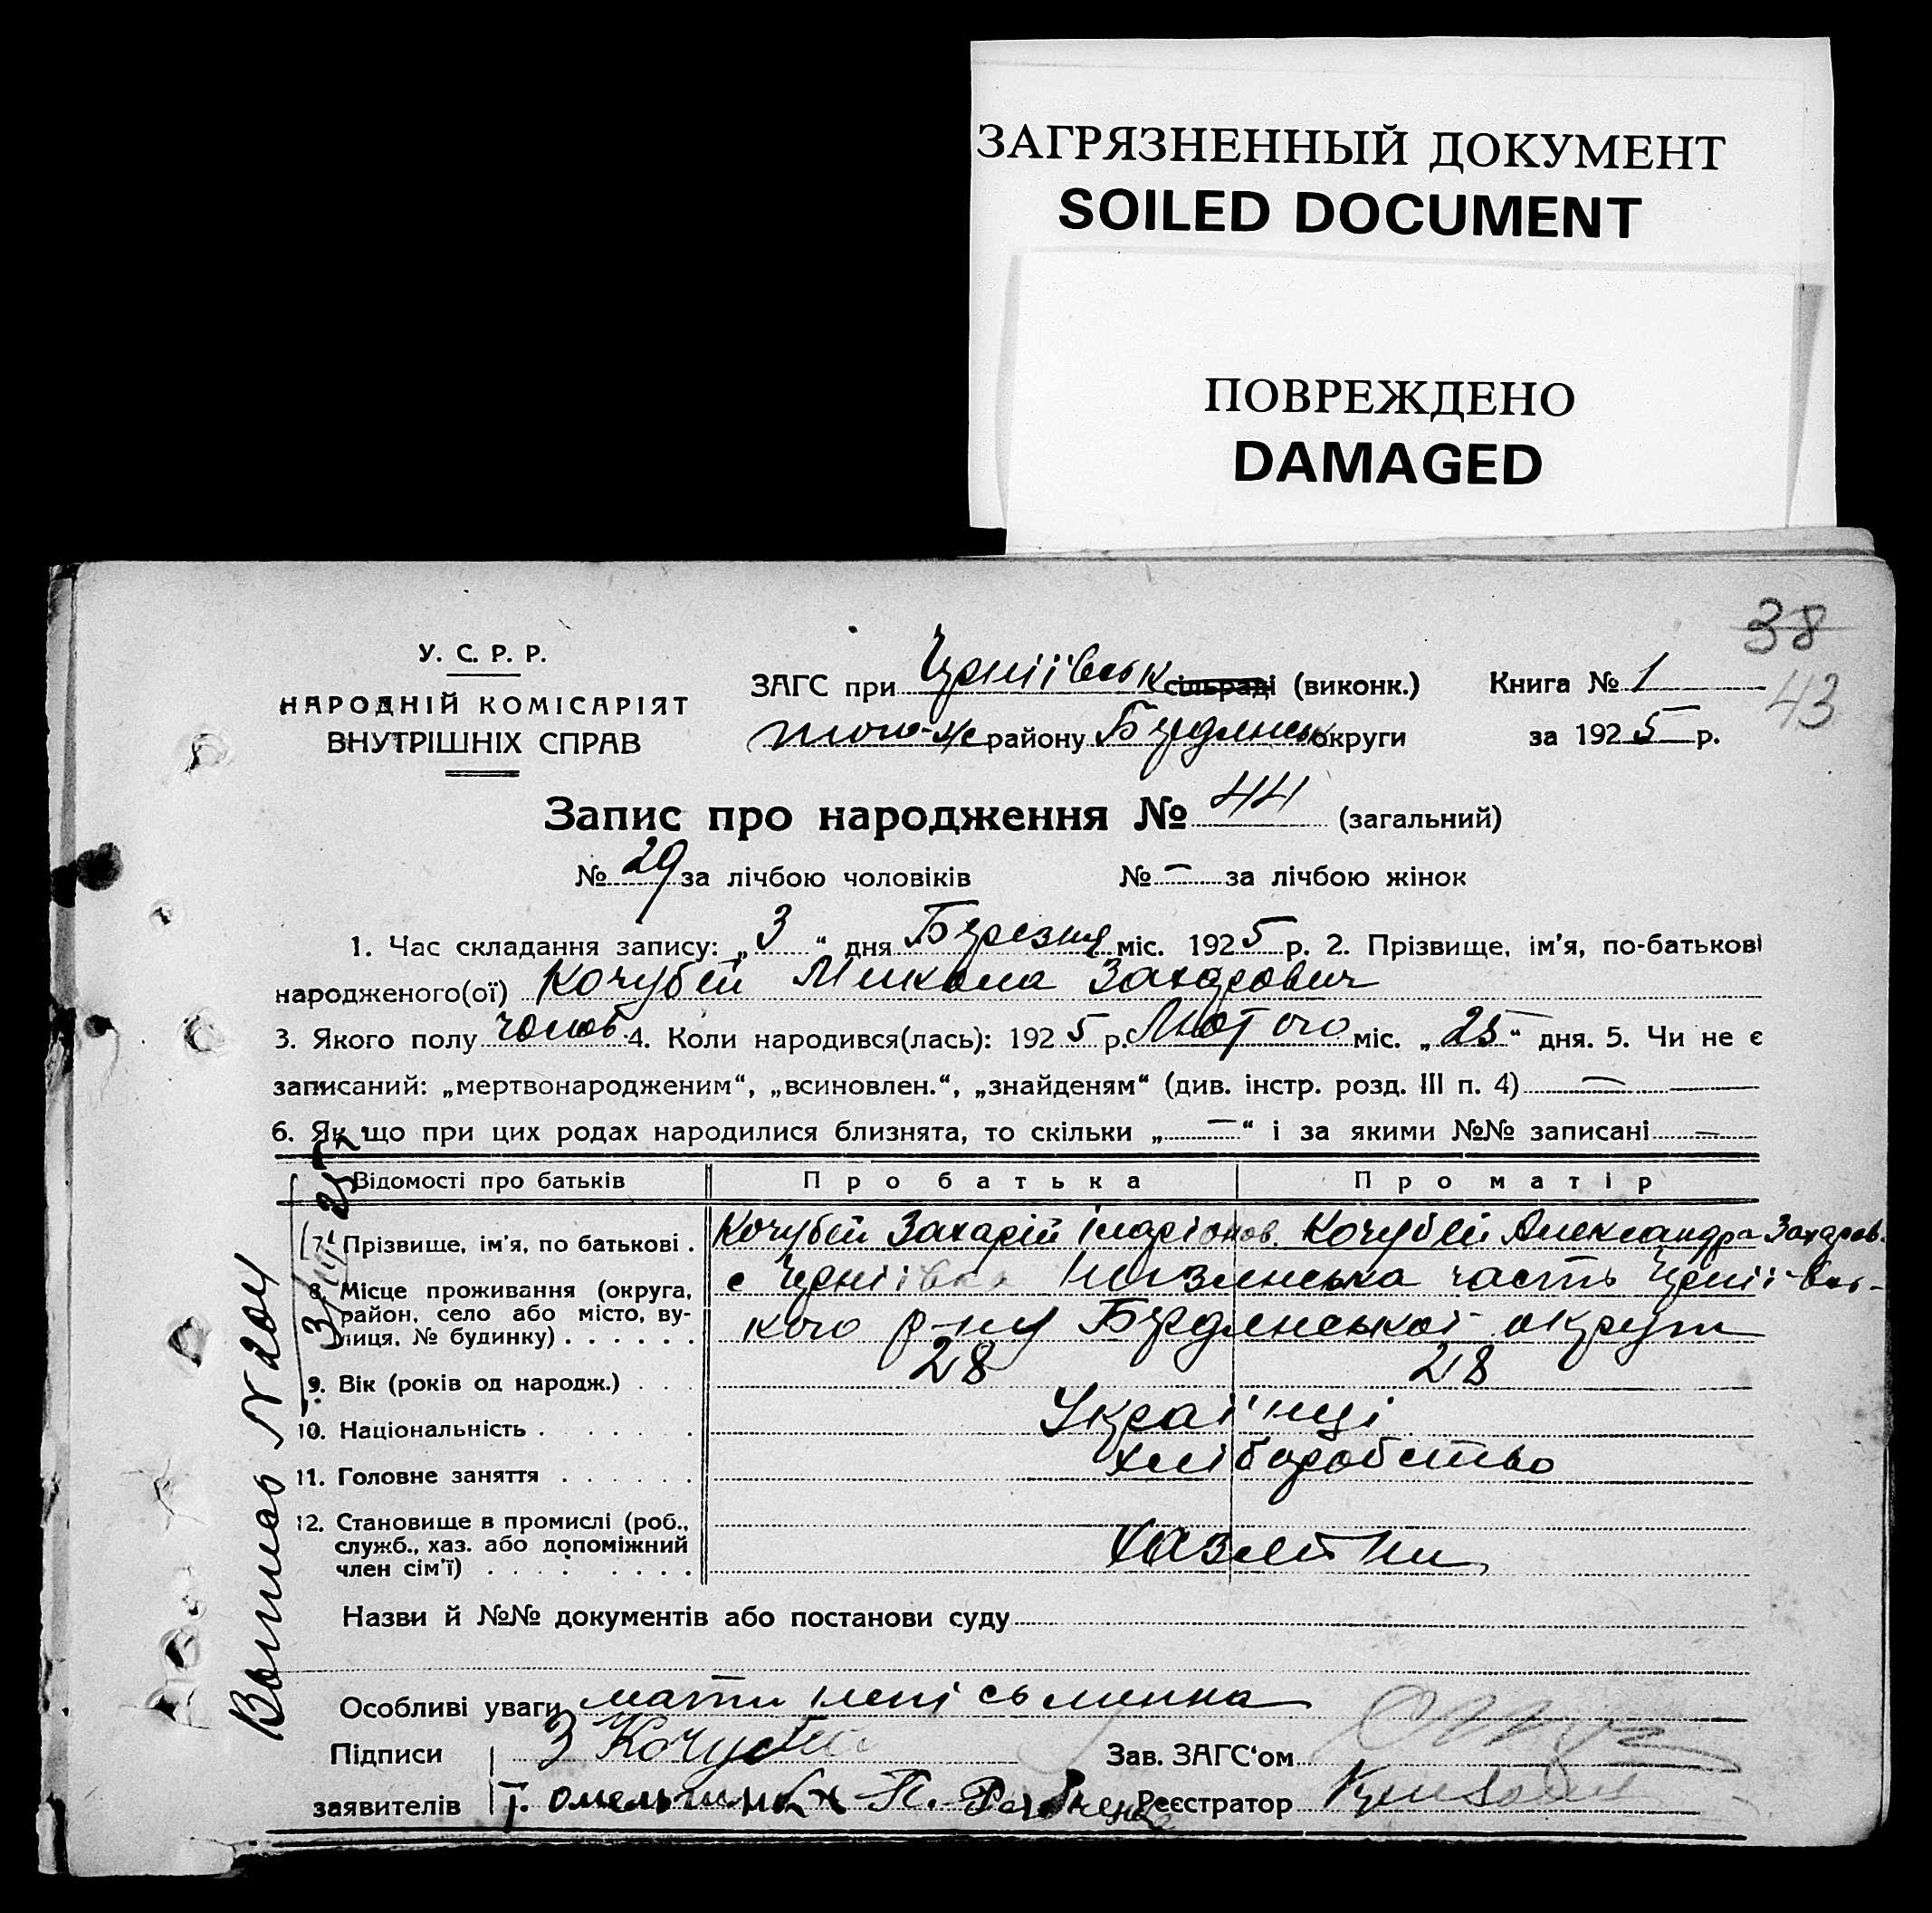 ЗАГРЯЗНЕННЫЙ ДОКУМЕНТ
SOILED DOCUMENT
ПОВРЕЖДЕНО
DAMAGED
38
43
У. С. Р. Р.
НАРОДНІЙ КОМІСАРІЯТ
ВНУТРІШНІХ СПРАВ
ЗАГС при Черніївськ сільраді (виконк.)
того-же району Бердянськ округи
Книга № 1
за 1925 р.
Запис про народження № 44 (загальний)
№ 29 за лічбою чоловіків № — за лічбою жінок
1. Час складання запису: „3“ дня Березня міс. 1925 р. 2. Прізвище, ім'я, по-батькові
народженого(ої) Кочубей Микола Захарович
3. Якого полу чолов. 4. Коли народився(лась): 1925 р. Лютого міс. „25“ дня. 5. Чи не є
записаний: „мертвонародженим“, „всиновлен.“, „знайденям“ (див. інстр. розд. III п. 4) —
6. Якщо при цих родах народилися близнята, то скільки „—“ і за якими №№ записані —
Відомості про батьків Про батька Про матір
7. Прізвище, ім'я, по батькові . Кочубей Захарій Іларіонов. Кочубей Александра Захаров.
8. Місце проживання (округа, район, село або місто, вулиця, № будинку) . . . . . . с Черніївка Ногаянська часть Черніївсь-
кого р-ну Бердянської округи
9. Вік (років од народж.) . . . 28 28
10. Національність . . . . . . . Українці
11. Головне заняття . . . . . . хліборобство
12. Становище в промислі (роб., служб., хаз. або допоміжний член сім'ї) . . . . . . . . Хазяїни
Назви й №№ документів або постанови суду
Особливі уваги мати неписьменна
Підписи З Кочубей Зав. ЗАГС'ом
заявителів Т. Омельченко П. Реєстратор
N 204